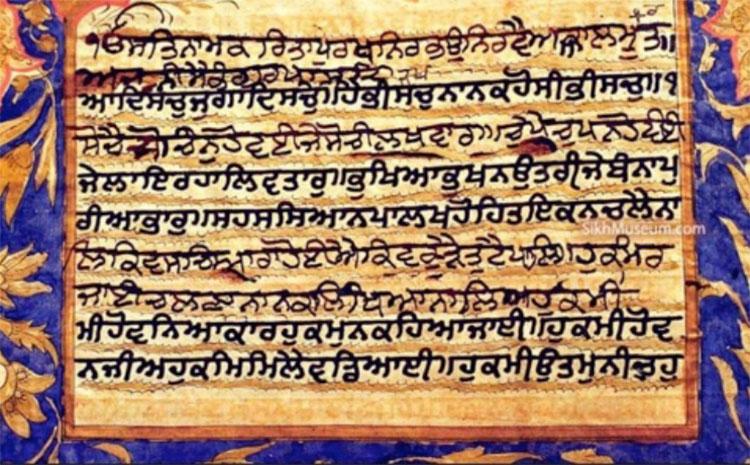 ੧ਓਸਤਿਨਾਮਕਰਿਤਾਪੁਰਖਨਿਰਭਉਨਿਰਵੈਅਕਾਲਮੂਤ॥
ਆਦਿਸਚੁਜੁਗਾਦਿਸਚੁ॥ਹੈਭੀਸਚੁਨਾਨਕਹੋਸੀਭੀਸਚੁ॥੧
ਸੋਚੈਸੋਚਿਨਹੋਵਈਜੇਸੋਚੀਲਖਵਾਰ॥ਚੁਪੈਚੁਪਨਹੋਵਈ
ਜੇਲਾਇਰਹਾਲਿਵਤਾਰੁ॥ਭੁਖਿਆਭੁਖਨਉਤਰੀਜੇਬੰਨਾਪੁ
ਰੀਆਭਾਰੁ॥ਸਹਸਸਿਆਨਪਾਲਖਹੋਹਿਤਇਕਨਚਲੈਨਾ
SikhMuseum.com
ਲਿਕਿਵਸਚਿਆਰਾਹੋਈਐਕਿਵਕੂੜੈਤੁਟੈਪਾਲਿ॥ਹੁਕਮਰ
ਜਾਈਚਲਣਾਨਾਨਕਲਿਖਿਆਨਾਲਿ॥ਹੁਕਮੀ
ਮੀਹੋਵਨਿਆਕਾਰਹੁਕਮੁਨਕਹਿਆਜਾਈ॥ਹੁਕਮੀਹੋਵ
ਨਜੀਅਹੁਕਮਿਮਿਲੈਵਡਿਆਈ॥ਹੁਕਮੀਉਤਮੁਨੀਚੁਹੁ